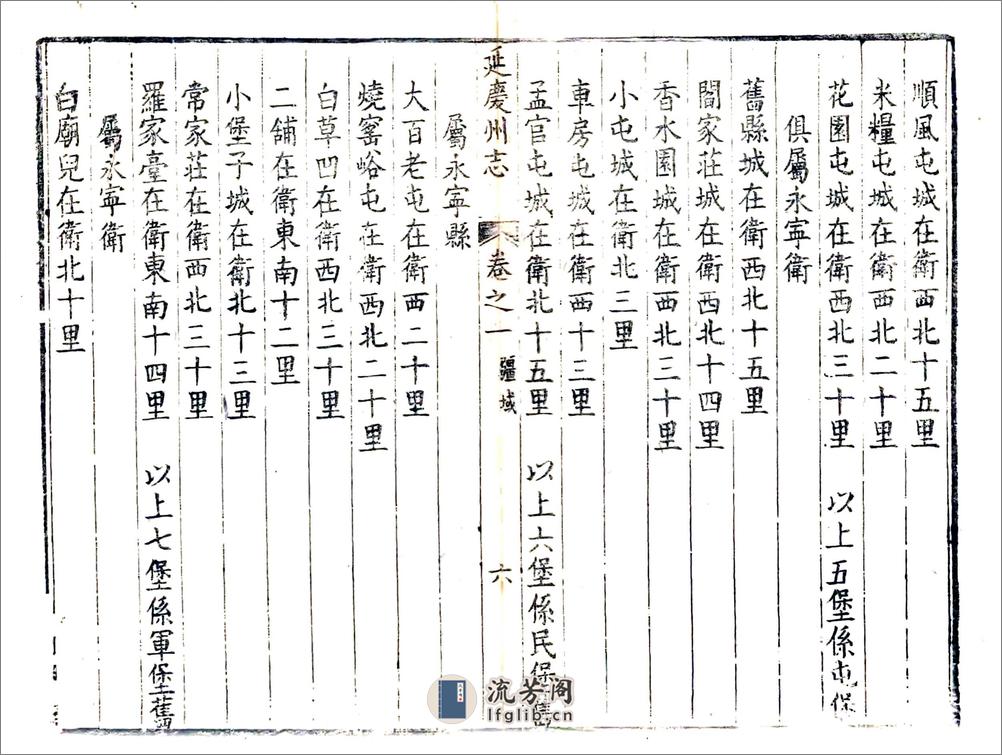 順風屯城在衛西北十五里
米糧屯城在衛西北二十里
花園屯城在衛西北三十里 以上五堡係屯保
俱屬永寧衛
舊縣城在衛西北十五里
閻家莊城在衛西北十四里
香水園城在衛西北三十里
小屯城在衛北三里
車房屯城在衛西十三里
孟官屯城在衛北十五里 以上六堡係民保舊
延慶州志 卷之一 疆域 六
屬永寧縣
大百老屯在衛西二十里
燒窰峪屯在衛西北二十里
白草凹在衛西北三十里
二舖在衛東南十二里
小堡子城在衛北十三里
常家莊在衛西北三十里
羅家臺在衛東南十四里 以上七堡係軍堡舊
屬永寧衛
白廟兒在衛北十里
流芳阁
lfglib.cn